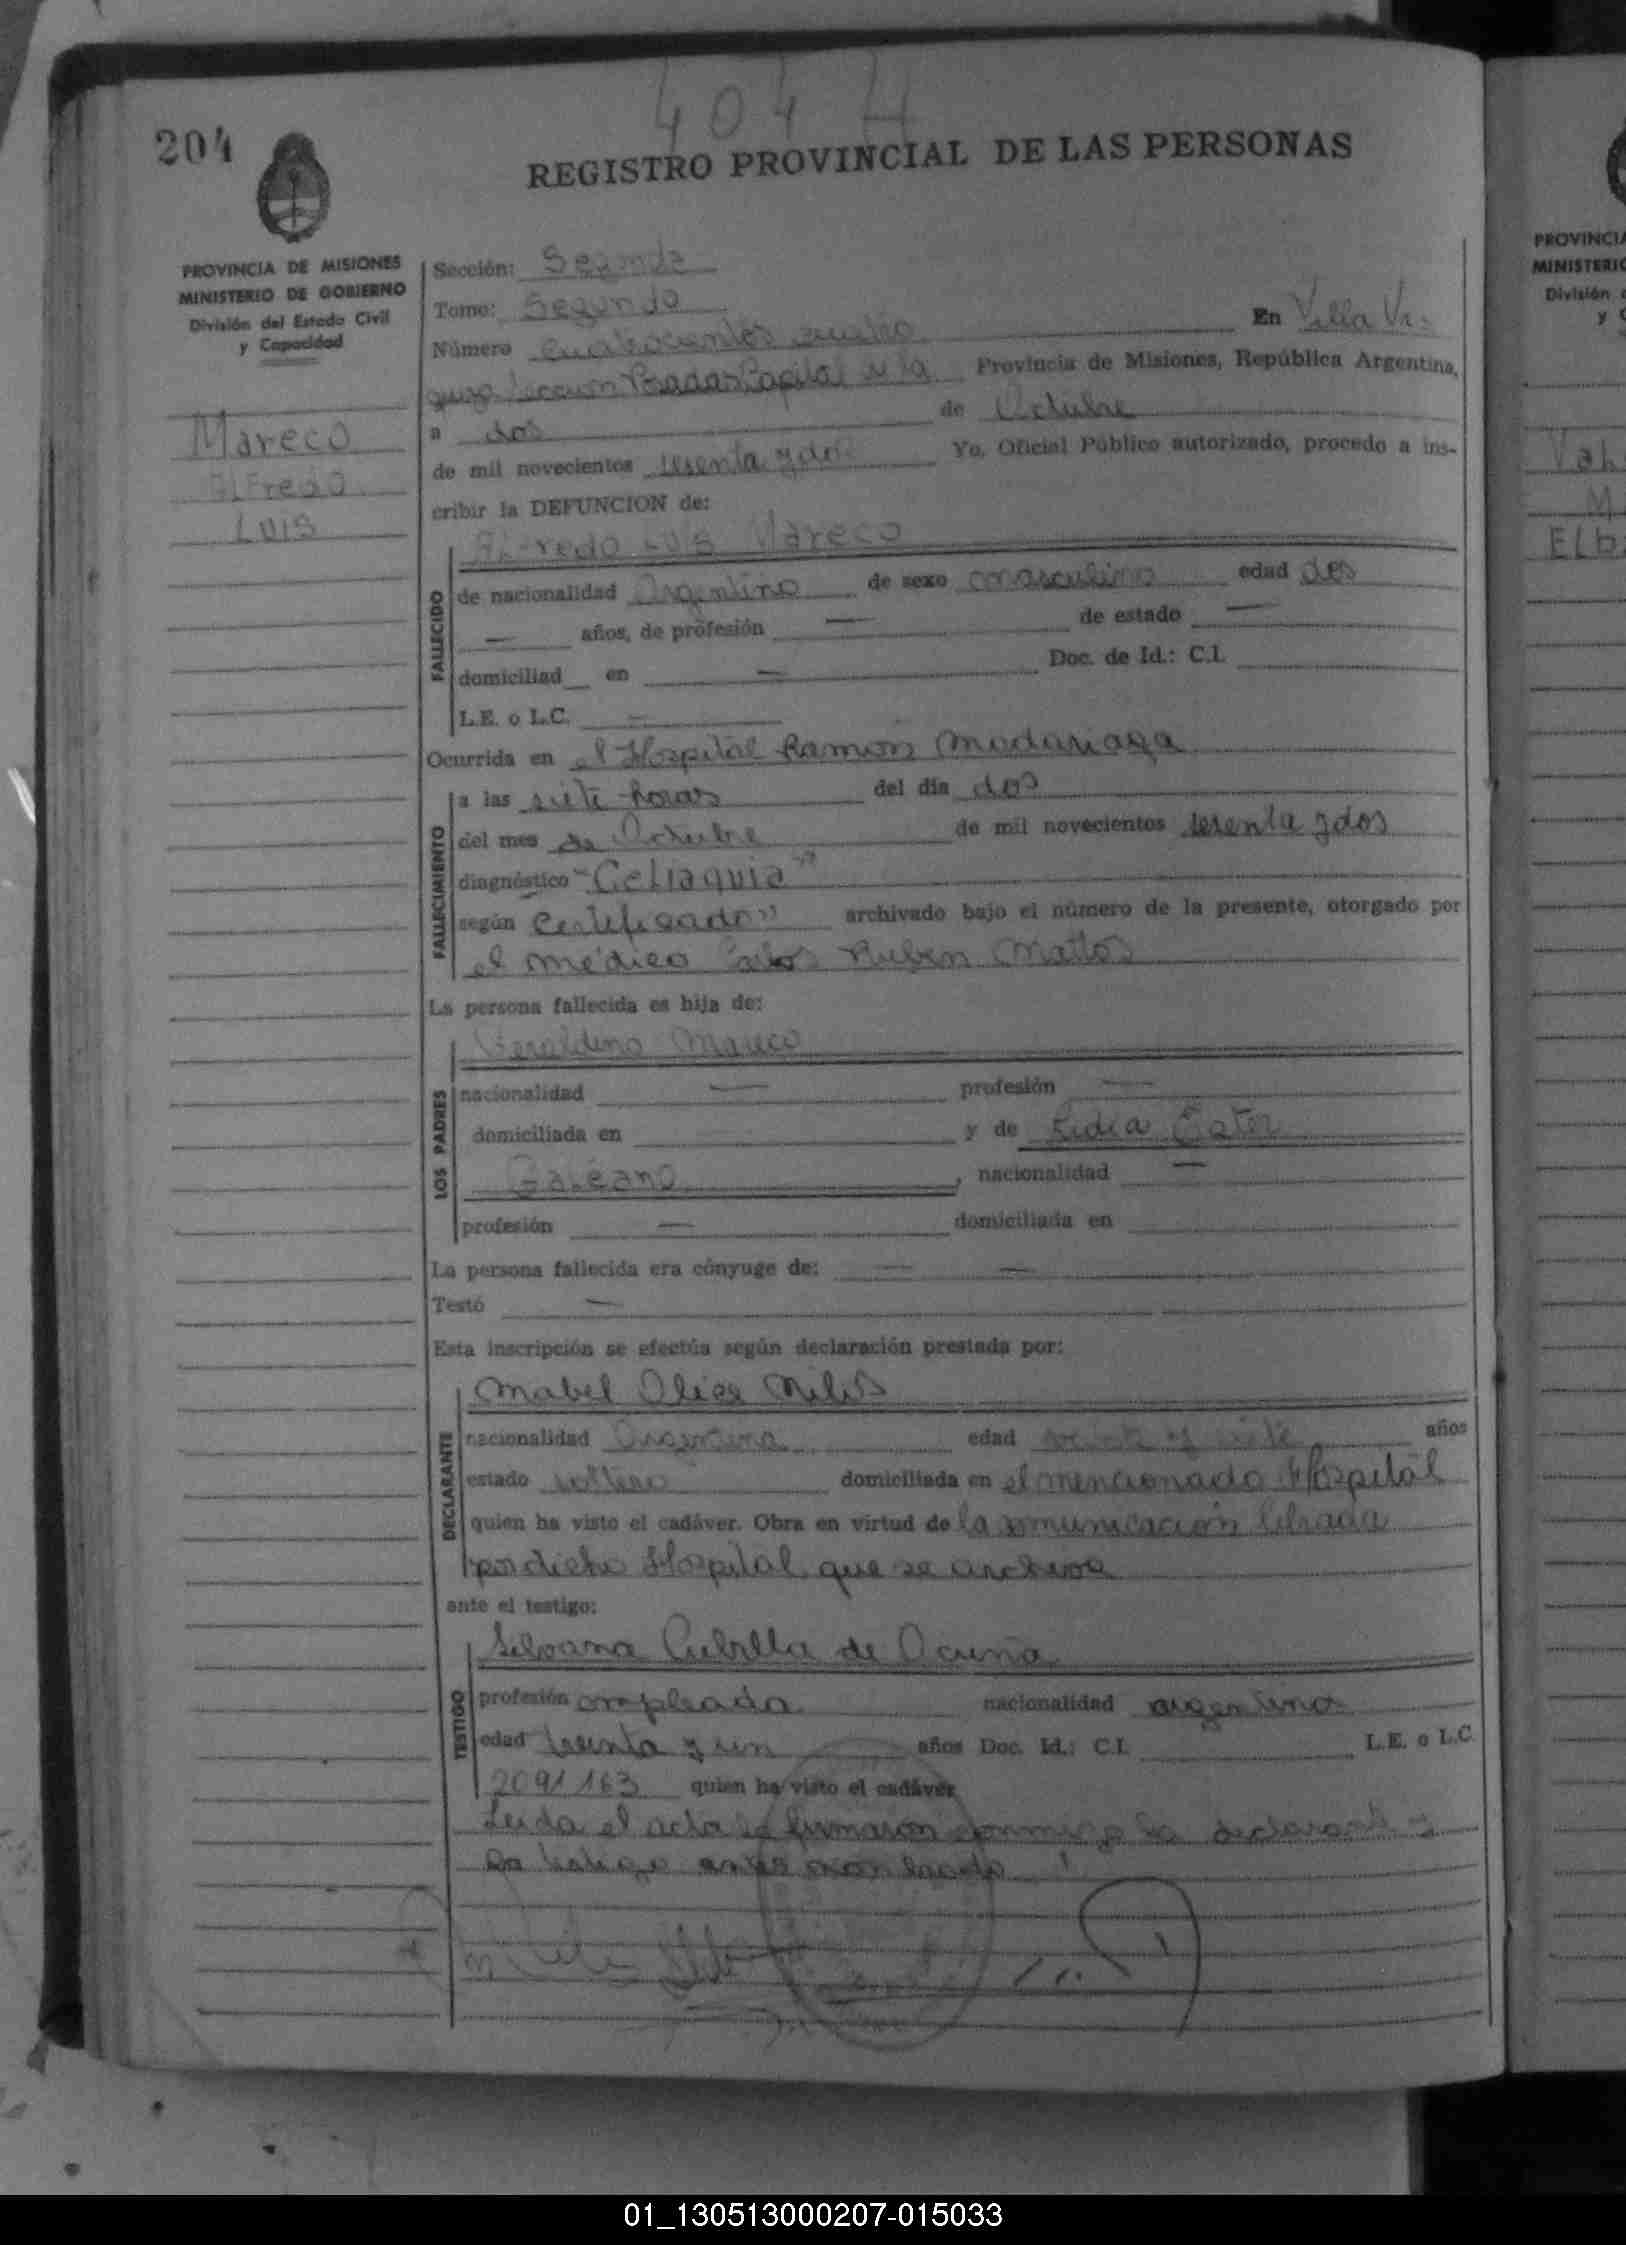 404 H
204
REGISTRO PROVINCIAL DE LAS PERSONAS
PROVINCIA DE MISIONES
MINISTERIO DE GOBIERNO
División del Estado Civil
y Capacidad
Mareco
Alfredo
Luis
Sección: Segunda
Tomo: Segundo
Número cuatrocientos cuatro En Villa Ur-
quiza Sección Posadas Capital de la Provincia de Misiones, República Argentina,
a dos de Octubre
de mil novecientos sesenta y dos Yo, Oficial Público autorizado, procedo a ins-
cribir la DEFUNCION de:
Alfredo Luis Mareco
FALLECIDO
de nacionalidad Argentino de sexo masculino edad dos
— años, de profesión — de estado —
domiciliad en — Doc. de Id.: C.I.
L.E. o L.C. —
Ocurrida en el Hospital Ramón Madariaga
FALLECIMIENTO
a las siete horas del día dos
del mes de Octubre de mil novecientos sesenta y dos
diagnóstico "Celiaquia"
según Certificado" archivado bajo el número de la presente, otorgado por
el médico Carlos Ruben Mattos
La persona fallecida es hija de:
LOS PADRES
Veraldino Mareco
nacionalidad — profesión —
domiciliada en y de Lidia Ester
Galeano, nacionalidad —
profesión — domiciliada en
La persona fallecida era cónyuge de: — —
Testó —
Esta inscripción se efectúa según declaración prestada por:
DECLARANTE
Mabel Olice
nacionalidad Argentina edad veinte y siete años
estado soltera domiciliada en el mencionado Hospital
quien ha visto el cadáver. Obra en virtud de la comunicación librada
por dicho Hospital que se archiva
ante el testigo:
TESTIGO
Silvana Cubilla de Acuña
profesión empleada nacionalidad argentina
edad treinta y un años Doc. Id.: C.I. L.E. o L.C.
2091163 quien ha visto el cadáver
Leida el acta la firmaron conmigo la declarante y
la testigo antes nombrada
PROVINCIA
MINISTERIO
División
y
Vah
M
Elb
01_130513000207-015033